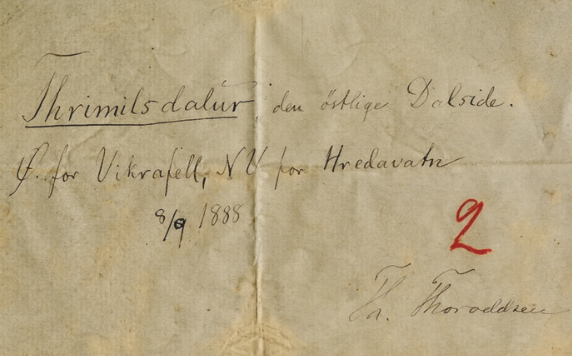 Thrimilsdalur, den östlige Dalside.
Ø. for Vikrafell, NV for Hredavatn
8/9 1888
2
Th. Thoroddsen